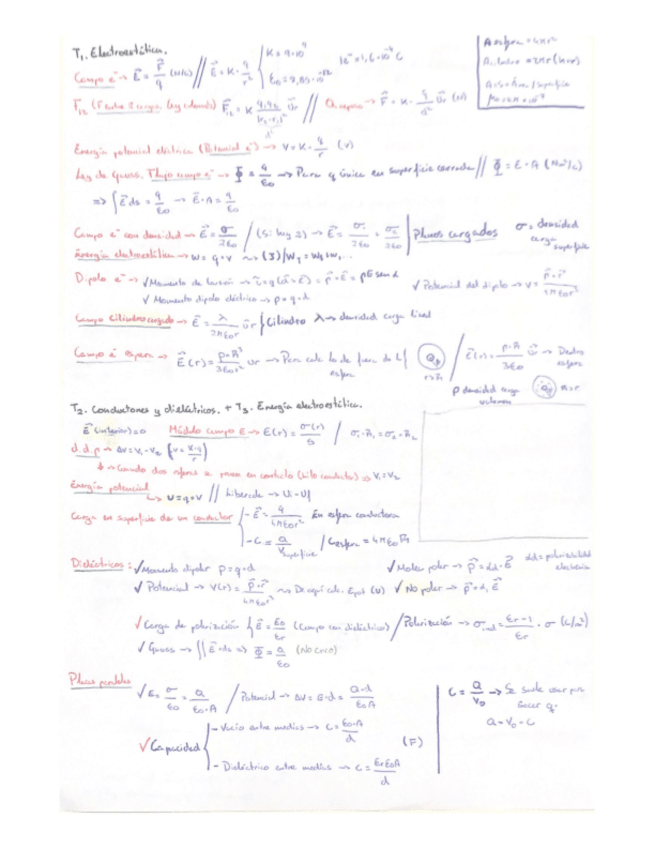 T₁. Electroestática.
A esfera = 4πr²
Campo e⁻ → E⃗ = F⃗/q (N/C) // E⃗ = K · q/r² { K = 9·10⁹
1e⁻ = 1,6·10⁻¹⁹ C
ε₀ = 8,85·10⁻¹²
F₁₂ (F entre 2 cargas. Ley coulomb) F⃗₁₂ = K · q₁q₂ u⃗r // → F⃗ = K · q/d² u⃗r (N)
Energía potencial eléctrica (Potencial e⁻) → V = K · q/r (V)
Ley de Gauss. Flujo campo e⁻ → Φ = q/ε₀ → Para q única en superficie cerrada // Φ = E · A (Nm²/C)
=> ∫E⃗ds = q/ε₀ → E⃗·A = q/ε₀
Campo e⁻ con densidad → E⃗ = σ/2ε₀ / (Si hay 2) → E⃗ = σ₁/2ε₀ = σ₂/2ε₀ | Planos cargados σ = densidad carga superficie
Energía electroestática → W = q·V → (J) / W_T = W₁+W₂...
Dipolo e⁻ → √ Momento de torsión → = p⃗·E⃗ = pE senα
√ Potencial del dipolo → V = p⃗·r⃗/4πε₀r²
√ Momento dipolo eléctrico → p = q·d
Campo cilindro cargado → E⃗ = λ/2πε₀r u⃗r } Cilindro λ → densidad carga lineal
Campo e⁻ esfera → E⃗(r) = ρ·R³/3ε₀r² ur → Para calc lo de fuera de la esfera
E⃗(r) = ρ·R/3ε₀ u⃗r → Dentro esfera
ρ densidad carga volumen
T₂. Conductores y dieléctricos. + T₃. Energía electroestática.
E⃗(interior) = 0 Módulo campo E → E(r) = σ(r)/ε / σ₁·R₁ = σ₂·R₂
d.d.p → ΔV = V₁-V₂ (V = K·q/r)
↓ → Cuando dos esferas se ponen en contacto (hilo conductor) => V₁ = V₂
Energía potencial
↳ U = q·V // Liberada → Ui - Uf
Carga en superficie de un conductor { - E⃗ = q/4πε₀r² En esfera conductora
- C = Q/V superficie / Cesfera = 4πε₀R
Dieléctricos: √ Momento dipolar p = q·d
√ Molec polar → p⃗ = αd·E⃗ αd = polarizabilidad electrónica
√ Potencial → V(r) = p⃗·r⃗/4πε₀r² → De aquí calc. Epot (U) √ No polar → p⃗ = α·E⃗
√ Carga de polarización { E⃗ = E₀/εr (Campo con dieléctrico) / Polarización → σind = εr-1/εr · σ (C/m²)
√ Gauss → ∫∫E⃗·ds => Φ = Q/ε₀ (No coco)
Placas paralelas
√ E = σ/ε₀ = Q/ε₀·A / Potencial → ΔV = E·d = Q·d/ε₀A
C = Q/V₀ → Se suele usar para sacar q.
Q = V₀·C
√ Capacidad { - Vacío entre medias → C = ε₀·A/d (F)
- Dieléctrico entre medias → C = εrε₀A/d